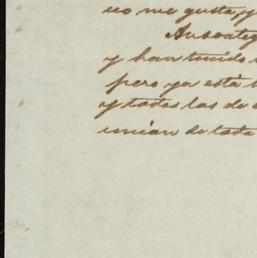 no me gusta, y
y han tenido
pero ya esta
y todas las de
union de toda